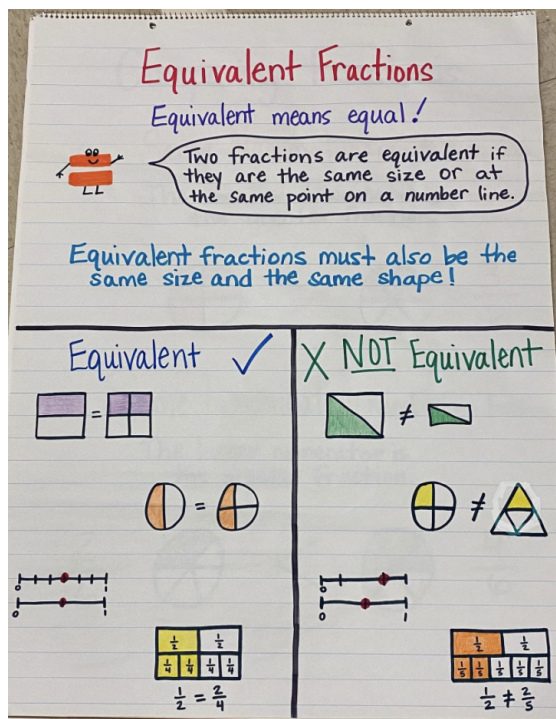 Equivalent Fractions
Equivalent means equal!
Two fractions are equivalent if
they are the same size or at
the same point on a number line.
Equivalent fractions must also be the
same size and the same shape!
Equivalent ✓
=
=
0 1
0 1
1/2 1/2
1/4 1/4 1/4 1/4
1/2 = 2/4
X NOT Equivalent
≠
≠
0 1
0 1
1/2 1/2
1/5 1/5 1/5 1/5 1/5
1/2 ≠ 2/5